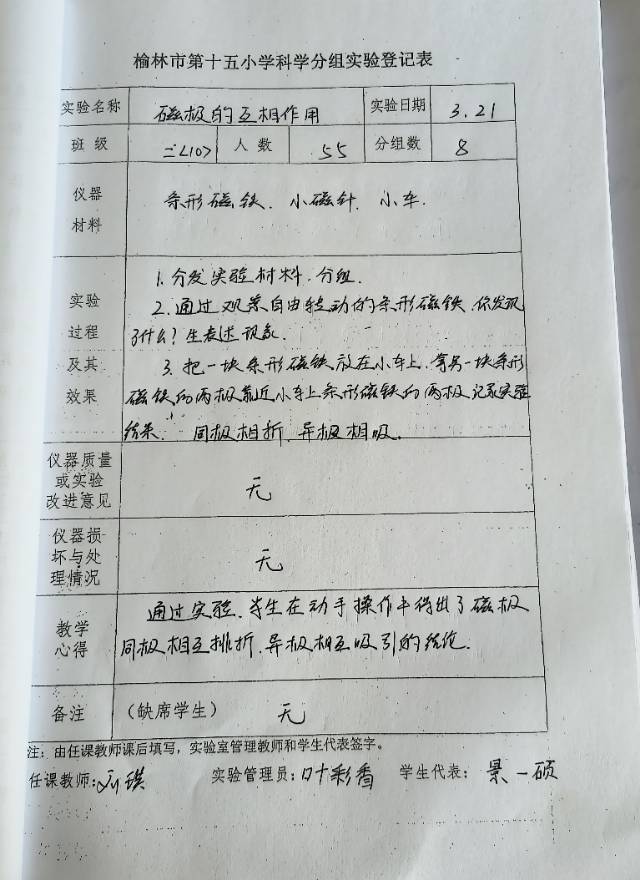 榆林市第十五小学科学分组实验登记表
实验名称 磁极的互相作用 实验日期 3.21
班级 二<10> 人数 55 分组数 8
仪器材料 条形磁铁. 小磁针. 小车.
实验过程及其效果
1. 分发实验材料. 分组.
2. 通过观察自由转动的条形磁铁. 你发现
了什么? 生表述现象.
3. 把一块条形磁铁放在小车上. 拿另一块条形
磁铁的两极靠近小车上条形磁铁的两极 记录实验
结果. 同极相折. 异极相吸.
仪器质量或实验改进意见 无
仪器损坏与处理情况 无
教学心得
通过实验. 学生在动手操作中得出了磁极
同极相互排折. 异极相互吸引的结论.
备注 (缺席学生) 无
注: 由任课教师课后填写, 实验室管理教师和学生代表签字。
任课教师: 刘琪 实验管理员: 叶彩香 学生代表: 景一硕